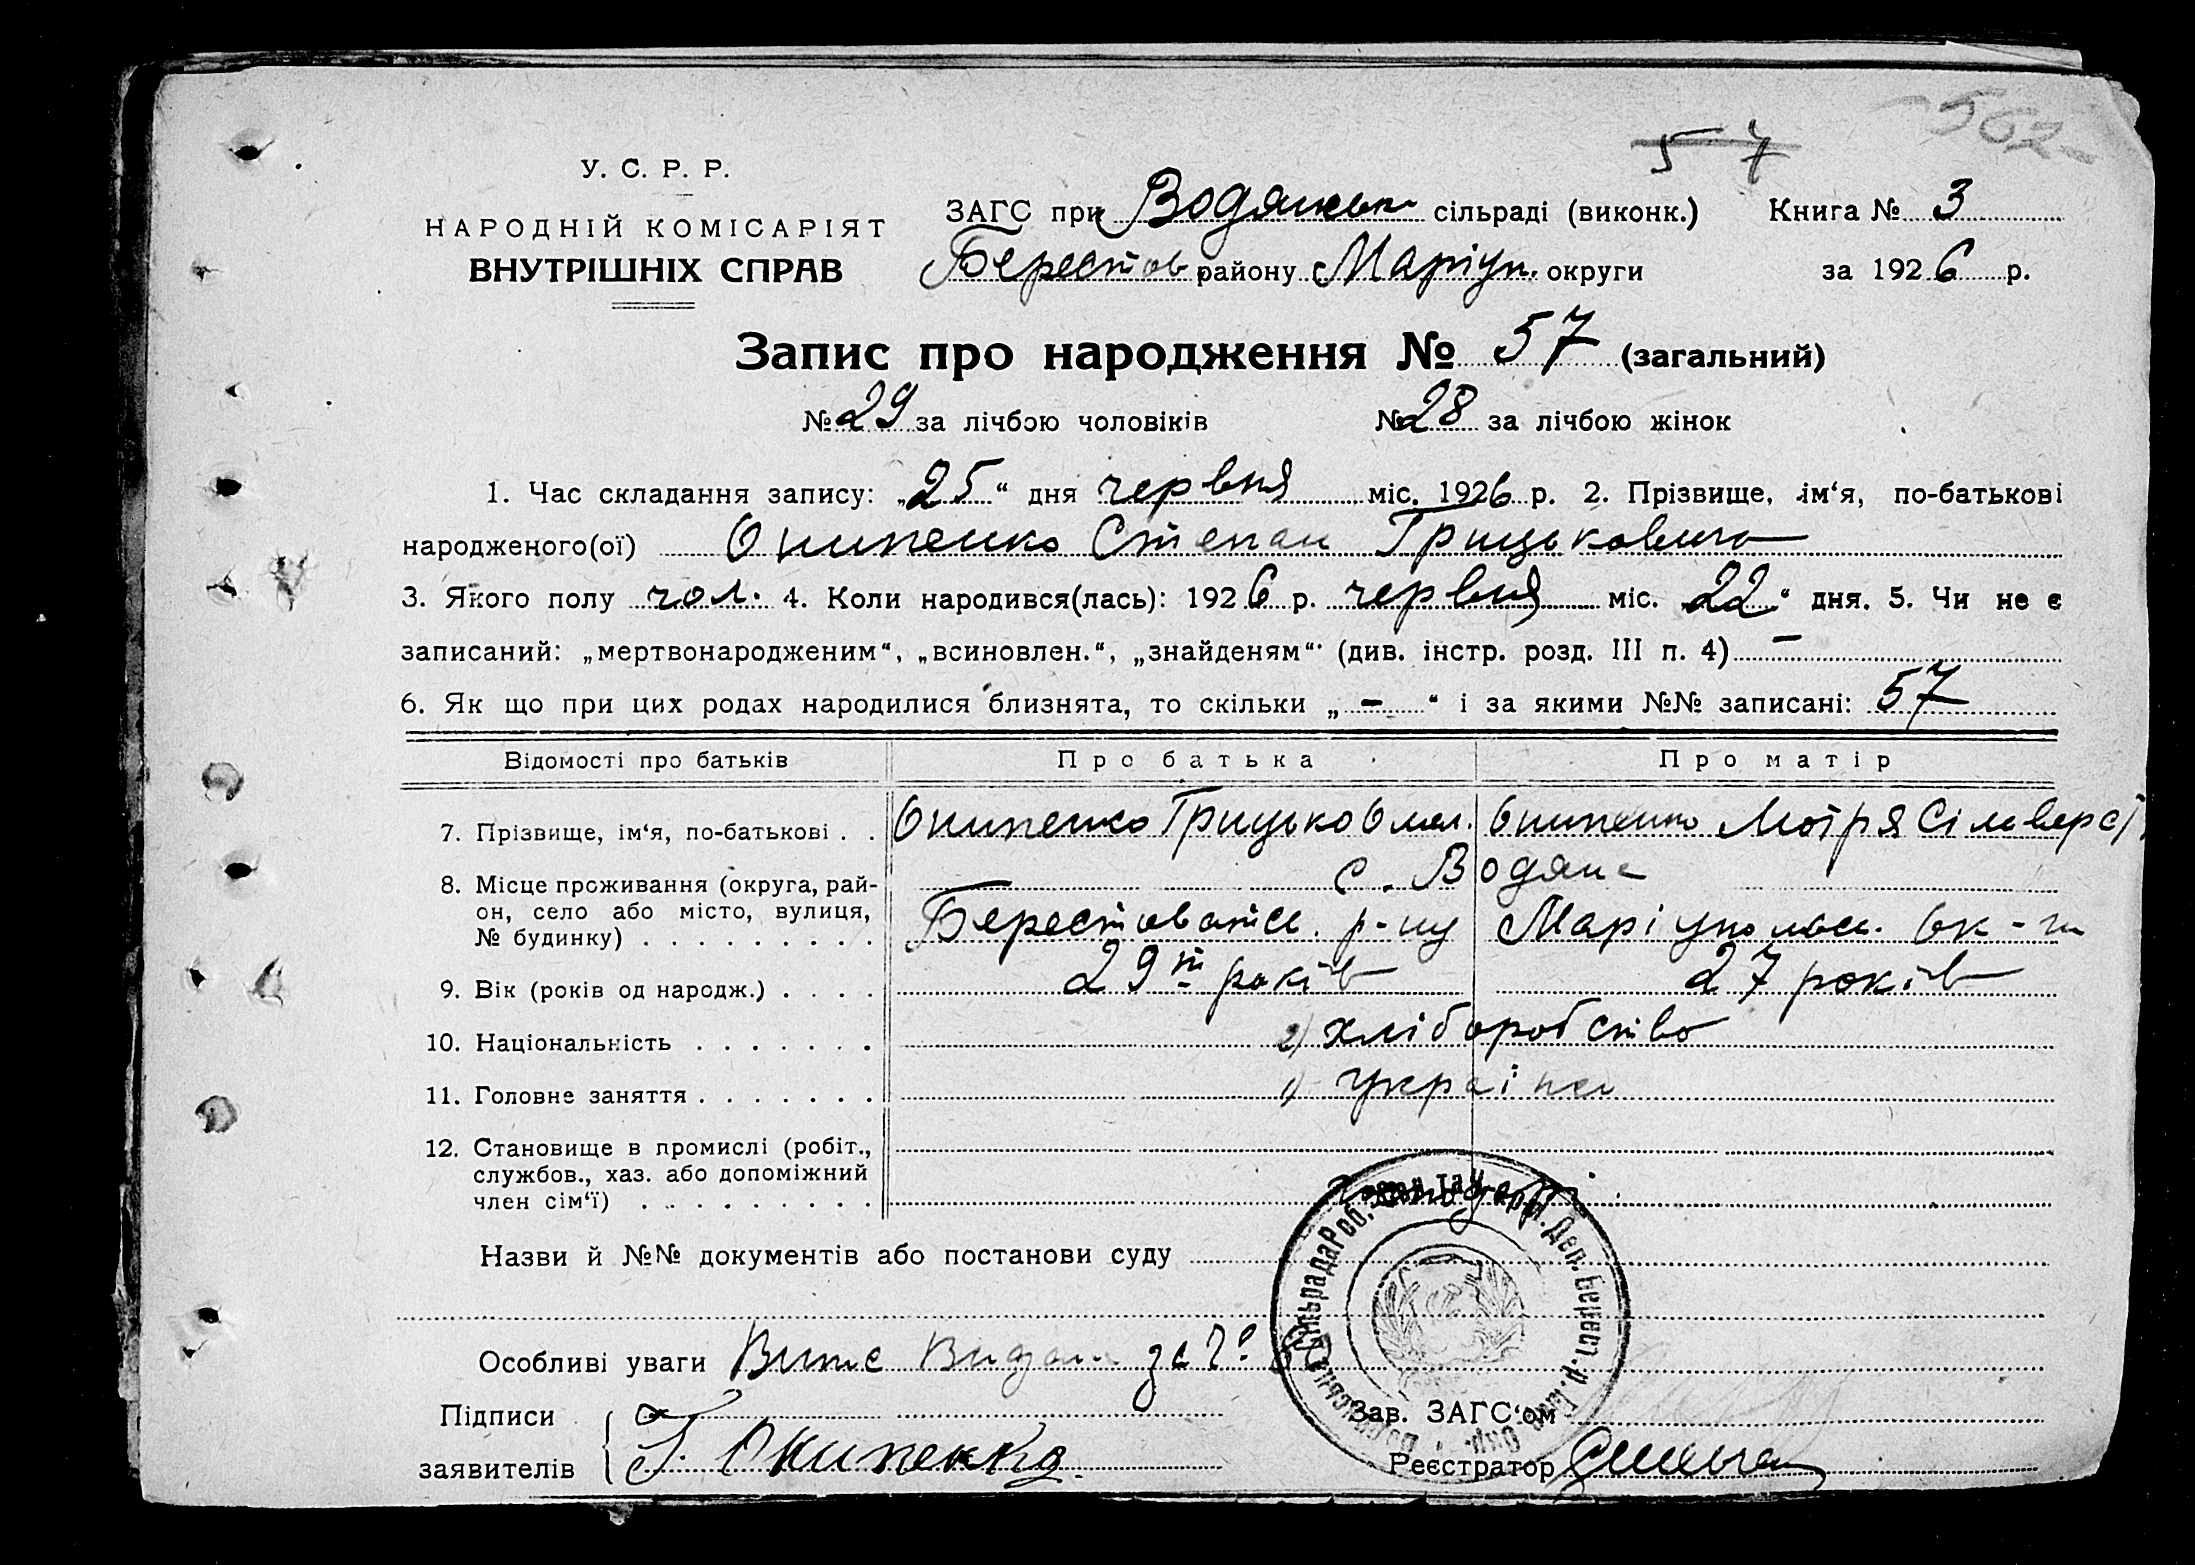 502
57
У. С. Р. Р.
НАРОДНІЙ КОМІСАРІЯТ
ВНУТРІШНІХ СПРАВ
ЗАГС при Водянськ сільраді (виконк.) Книга № 3
Берестов району Маріуп. округи за 1926 р.
Запис про народження № 57 (загальний)
№ 29 за лічбою чоловіків № 28 за лічбою жінок
1. Час складання запису: „25“ дня червня міс. 1926 р. 2. Прізвище, ім‘я, по-батькові
народженого(ої) Онипенко Степан Грицькович
3. Якого полу чол. 4. Коли народився(лась): 1926 р. червня міс. „22“ дня. 5. Чи не є
записаний: „мертвонародженим“, „всиновлен.“, „знайденям“ (див. інстр. розд. III п. 4) —
6. Як що при цих родах народилися близнята, то скільки „—“ і за якими №№ записані: 57
Відомості про батьків Про батька Про матір
7. Прізвище, ім‘я, по-батькові . . Онипенко Грицько Омел. Онипенко Мотря Сільверст
8. Місце проживання (округа, рай- с. Водяне
он, село або місто, вулиця, Берестоватск. р-ну Маріупольськ. Ок-ги
№ будинку) . . . . . . . . .
9. Вік (років од народж.) . . . . 29ть років 27 років
10. Національність . . . . . . . 2) хліборобство
11. Головне заняття . . . . . . . 1) україн
12. Становище в промислі (робіт.,
службов., хаз. або допоміжний
член сім‘ї) . . . . . . . . .
Назви й №№ документів або постанови суду
Особливі уваги за №
Підписи
заявителів Г. Онипенко
Зав. ЗАГС‘ом
Реєстратор